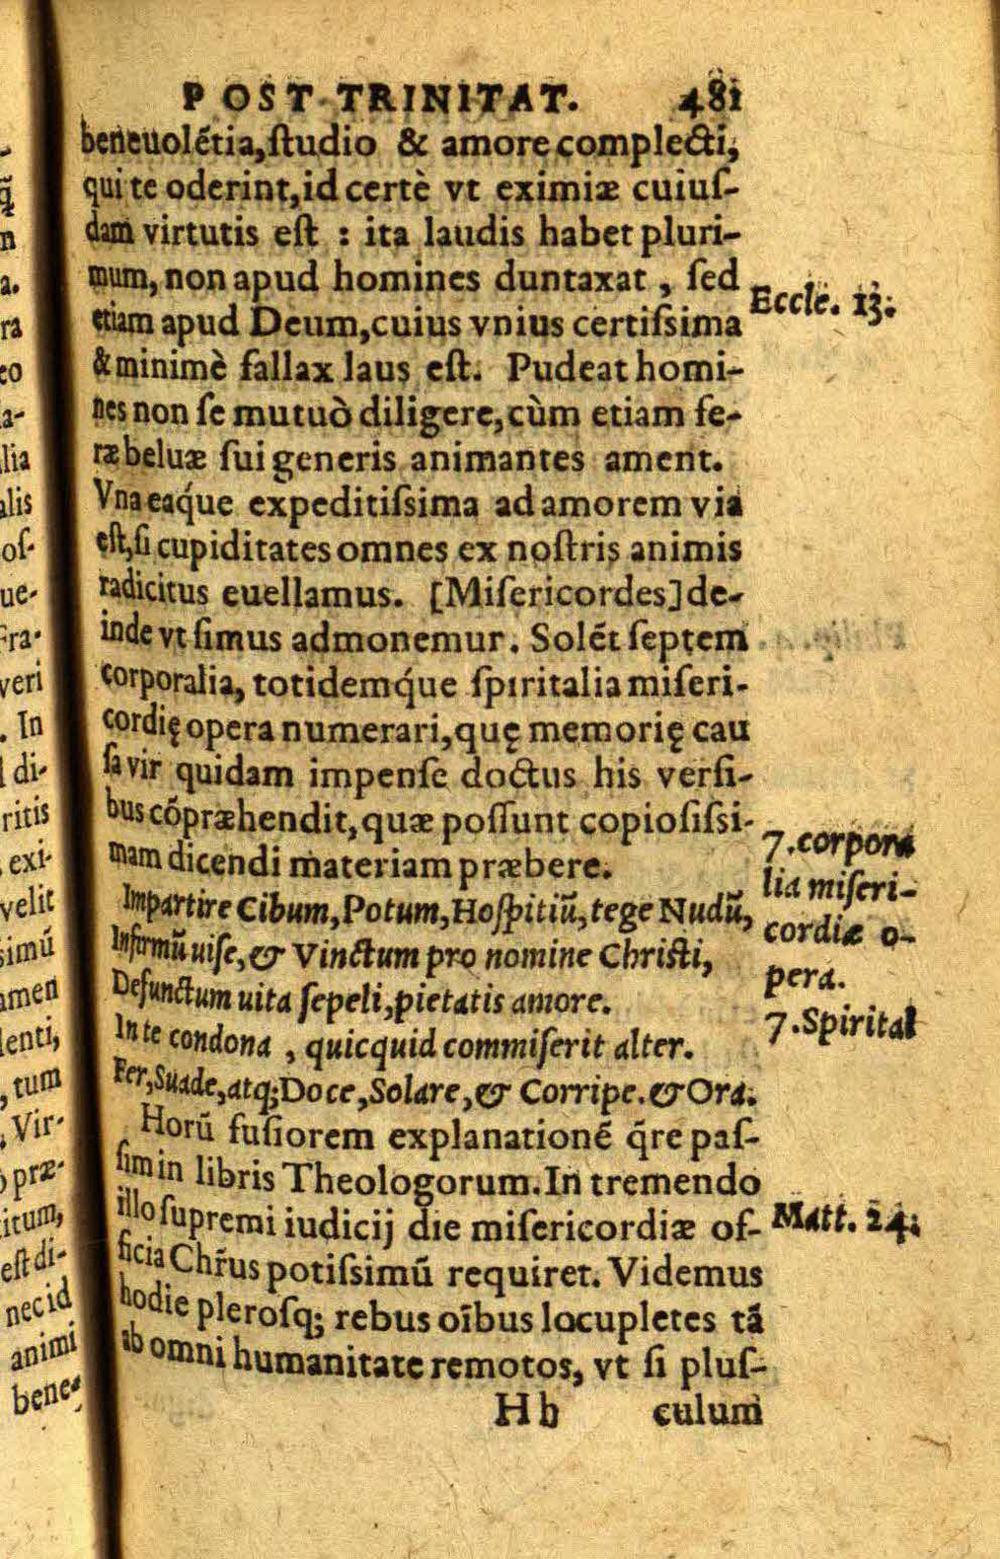 POST TRINITAT. 481
beneuolẽtia,ſtudio & amore complecti,
qui te oderint,id certè vt eximiæ cuiuſ-
dam virtutis eſt : ita laudis habet pluri-
mum, non apud homines duntaxat , ſed
etiam apud Deum,cuius vnius certiſsima
& minimè fallax laus eſt. Pudeat homi-
nes non ſe mutuò diligere,cùm etiam fe-
ræ beluæ ſui generis animantes ament.
Vna eaq́ue expeditiſsima ad amorem via
eſt,ſi cupiditates omnes ex noſtris animis
radicitus euellamus. [Miſericordes] de-
inde vt ſimus admonemur. Solẽt ſeptem
corporalia, totidemq́ue ſpiritalia miſeri-
cordię opera numerari,quę memorię cau
ſa vir quidam impenſe doctus his verſi-
bus cõpræhendit,quæ poſſunt copioſiſsi-
mam dicendi materiam præbere.
Impartire Cibum,Potum,Hoſpitiũ,tege Nudũ,
Infirmũ uiſe,& Vinctum pro nomine Chriſti,
Defunctum uita ſepeli,pietatis amore.
In te condona , quicquid commiſerit alter.
Fer,Suade,atq;Doce,Solare,& Corripe.& Ora.
Horũ fuſiorem explanationẽ q̃re paſ-
ſim in libris Theologorum. In tremendo
illo ſupremi iudicij die miſericordiæ of-
ficia Chr̃us potiſsimũ requiret. Videmus
hodie pleroſq; rebus oĩbus locupletes tã
ab omni humanitate remotos, vt ſi pluſ-
Hh culum
Eccle. 13.
7.corpora
lia miſeri-
cordiæ o-
pera.
7.Spirital
Matt. 24.
q̃
n
a.
ra
co
a-
lia
alis
oſ-
ue-
fra-
veri
. In
di-
ritis
exi-
velit
simũ
amen
lenti,
, tum
. Vir-
præ-
itum,
eſt di-
nec id
animi
bene-